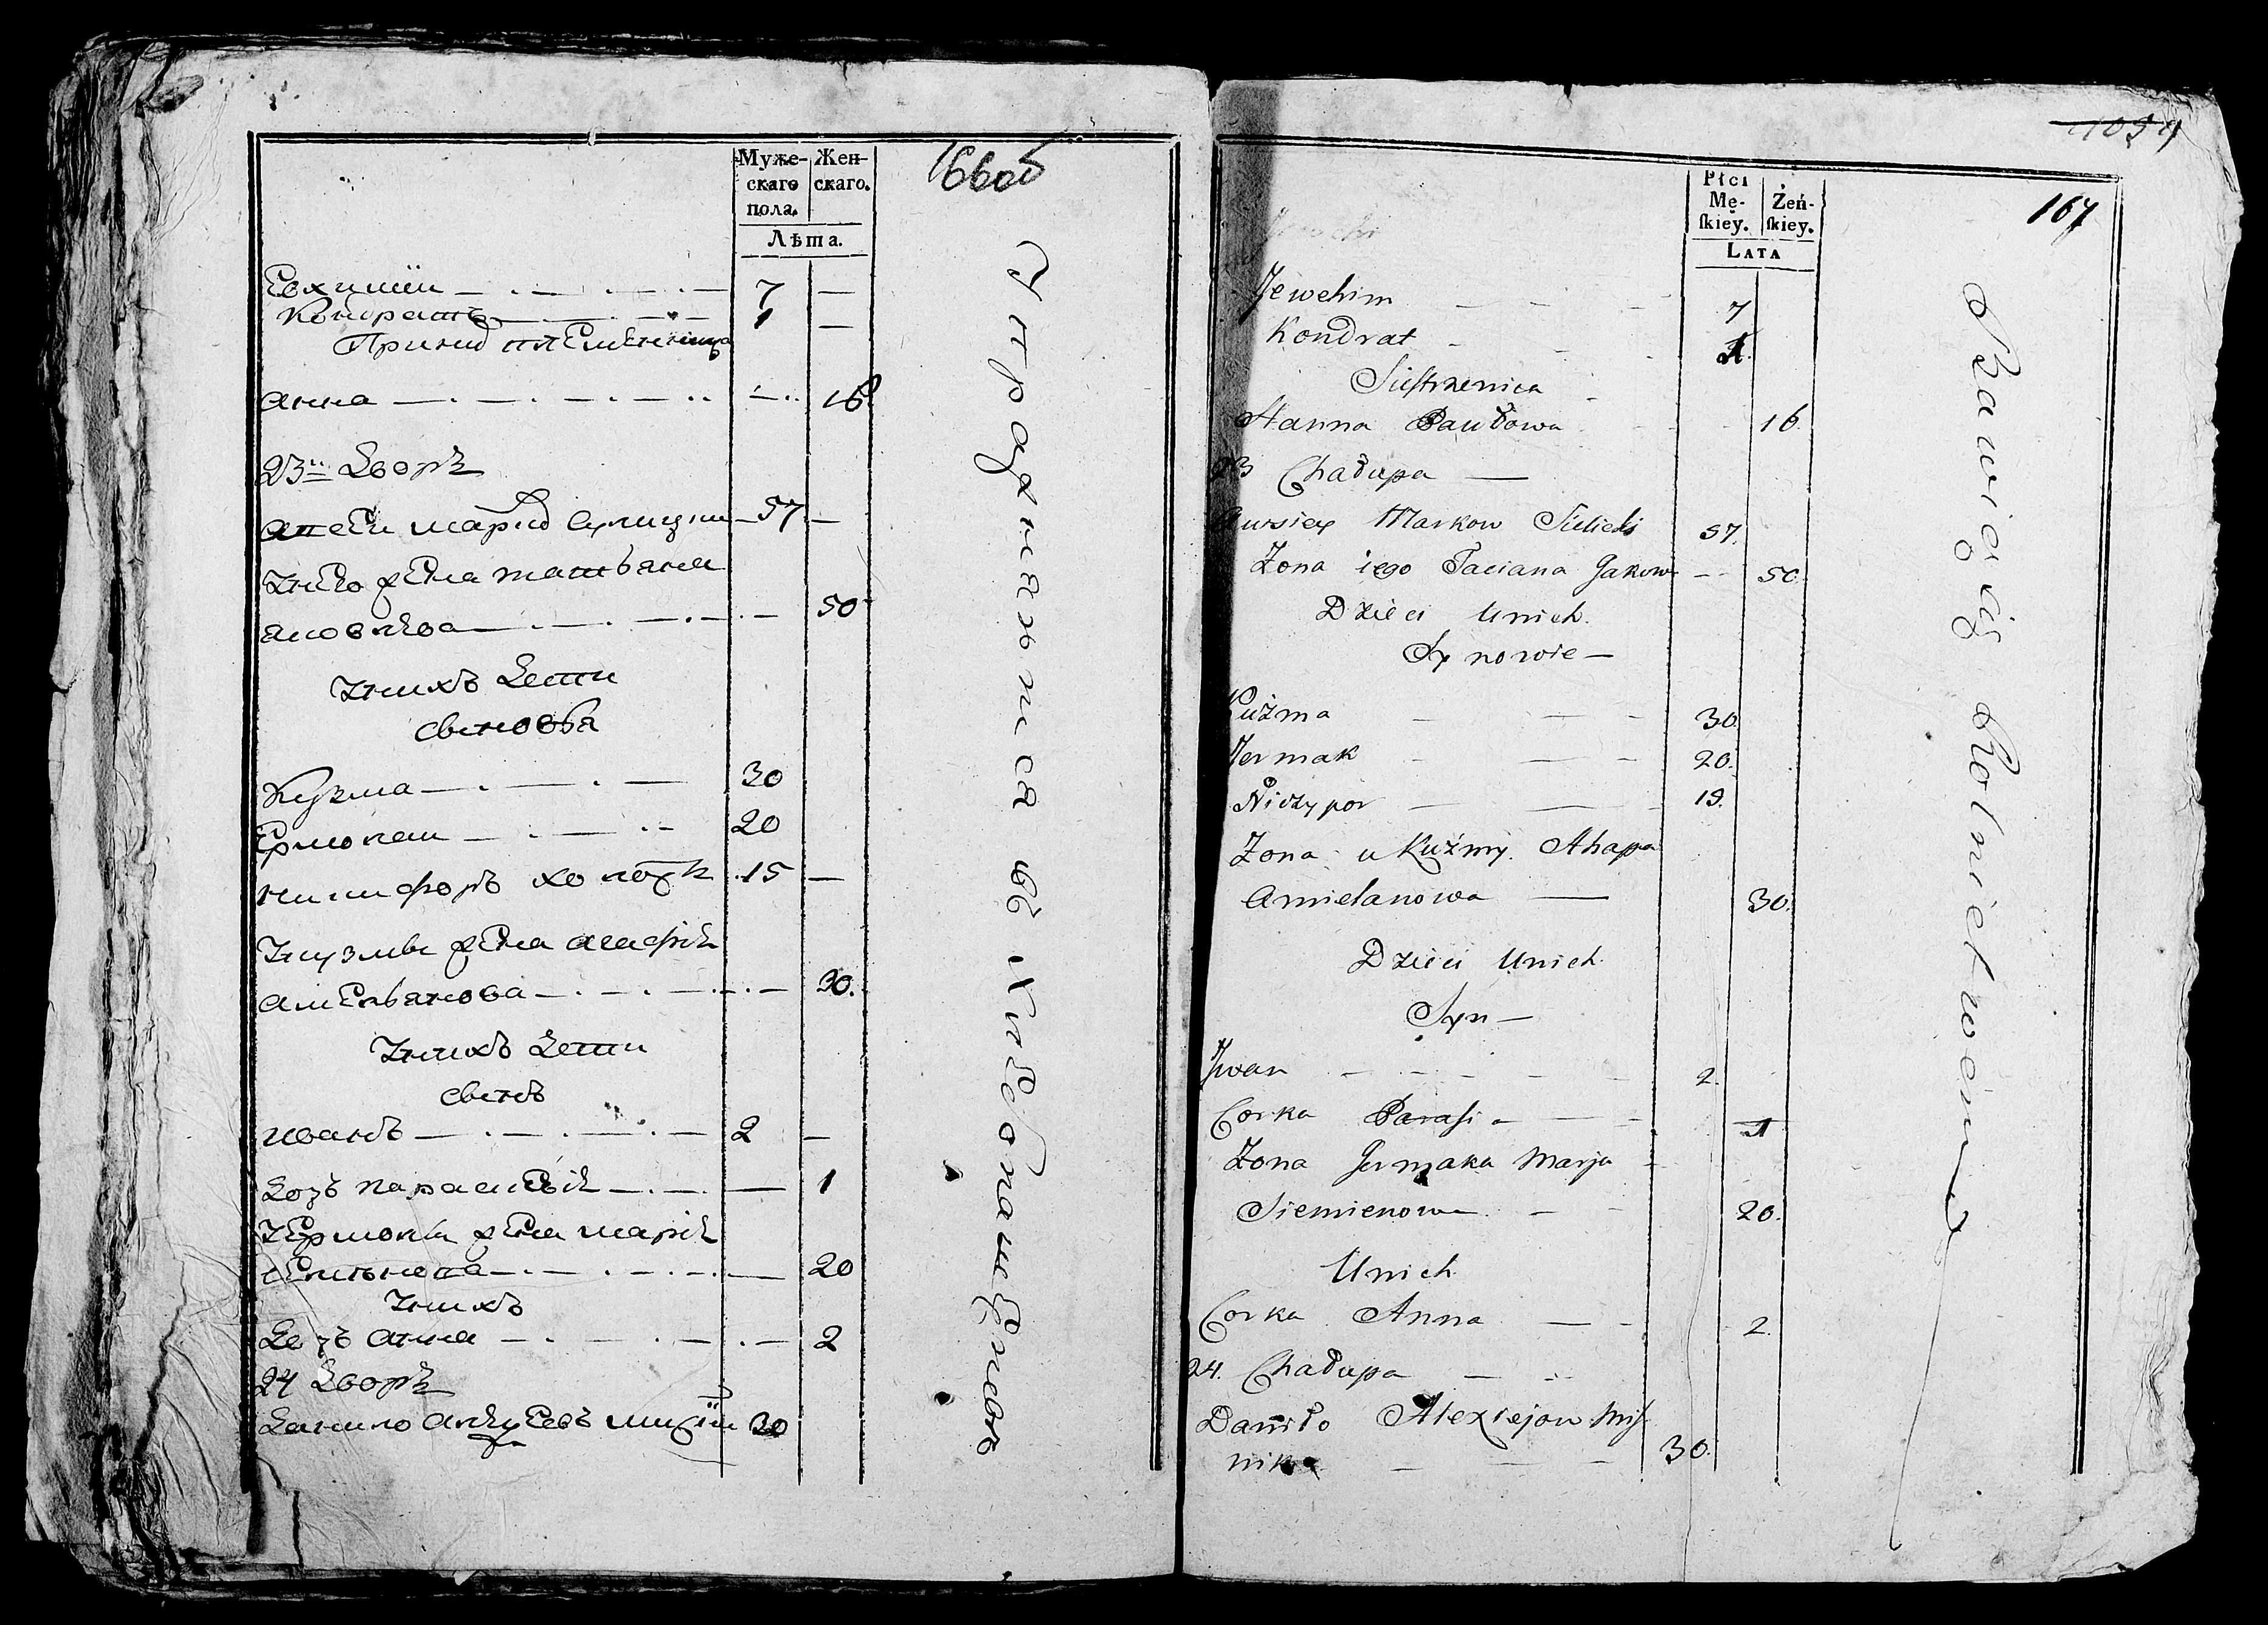 166об
Муже-
скаго
пола.
Жен-
скаго.
Лѣта.
Евхимiи 7 —
Кондратъ 1 —
Принид племенница
анна 16
23й дворъ
авсеи марко сулицки 57 —
Унево жена татьяна
яковлева 50
Унихъ дети
сыновья
Кузма 30
Ермолаи 20
никифоръ холостъ 15 —
Укузмы жена агафiя
амельянова 30.
Унихъ дети
сынъ
иванъ 2 —
дочь парасковiя — 1
Уермолы жена марiя
семенова 20
Унихъ
дочь анна 2
24 дворъ
данило алексеевъ 30
Упражняются въ хлебопашествѣ
1054
167
Płci
Mę-
ſkiey.
Żeń-
ſkiey.
LATA
Jewchim 7
Kondrat 1.
Siestrzenica
Hanna Pawłowa 16
23 Chałupa —
Awsiey Markow Sulicki 57.
Zona iego Taciana Jakow 50
Dzieci Unich.
Synowie —
Kuźma 30.
Jermak 20.
Niczypor 19.
Zona u Kuźmy Ahapa
Amielanowa — 30.
Dzieci Unich.
Syn —
Jwan 2.
Corka Parasia 1
Zona Jermaka Marja
Siemienowa 20.
Unich
Corka Anna 2.
24. Chałupa
Daniło Alexiejow Mis
nika 30.
Bawieią się Rolnictwem